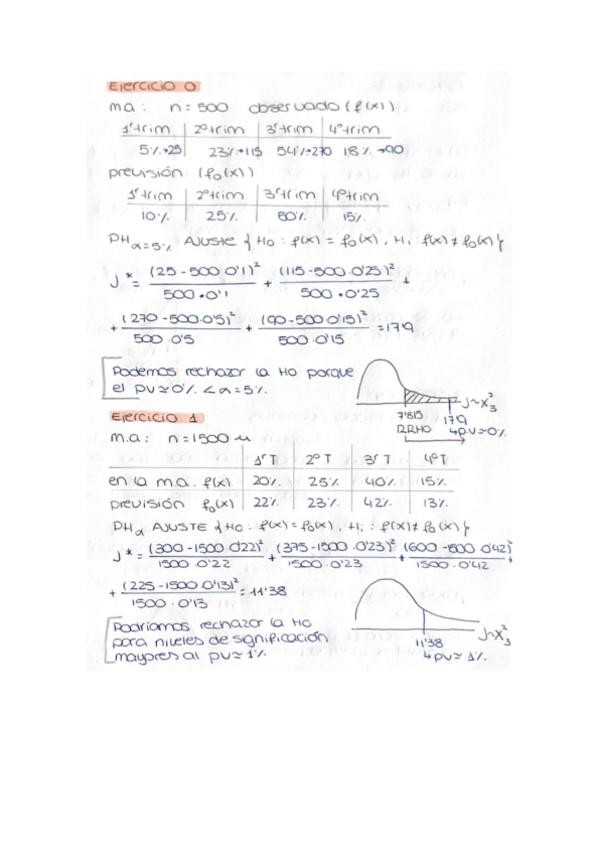 Ejercicio 0
m.a: n = 500 observado (f(x))
1ºtrim | 2ºtrim | 3ºtrim | 4ºtrim
5%→25 23%→115 54%→270 18%→90
previsión (f₀(x))
1ºtrim | 2ºtrim | 3ºtrim | 4ºtrim
10% 25% 50% 15%
PH α=5% AJUSTE { H₀ : f(x) = f₀(x), H₁ : f(x) ≠ f₀(x) }
J* = (25-500·0'1)² / 500·0'1 + (115-500·0'25)² / 500·0'25 +
+ (270-500·0'5)² / 500·0'5 + (90-500·0'15)² / 500·0'15 = 17'9
Podemos rechazar la H0 porque
el pv≃0% < α=5%.
J~X²₃
7'815
17'9
RRH0 ↳pv≃0%
Ejercicio 1
m.a: n=1500 u
1ºT 2ºT 3ºT 4ºT
en la m.a. f(x) 20% 25% 40% 15%
previsión f₀(x) 22% 23% 42% 13%
PHα AJUSTE { H₀ : f(x) = f₀(x), H₁ : f(x) ≠ f₀(x) }
J* = (300-1500·0'22)² / 1500·0'22 + (375-1500·0'23)² / 1500·0'23 + (600-1500·0'42)² / 1500·0'42 +
+ (225-1500·0'13)² / 1500·0'13 = 11'38
Podríamos rechazar la H0
para niveles de significación
mayores al pv≃1%.
J~X²₃
11'38
↳pv≃1%.